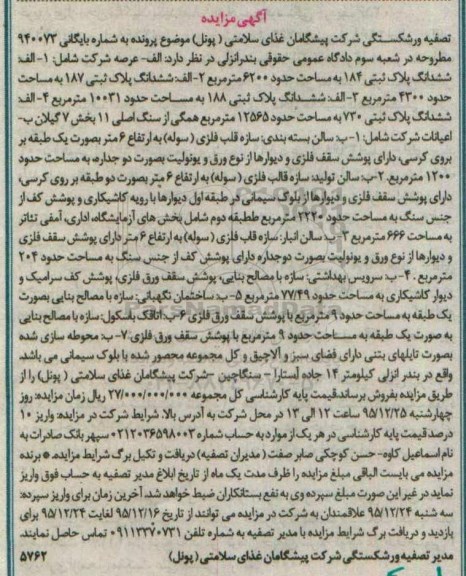 آگهی مزایده
تصفیه ورشکستگی شرکت پیشگامان غذای سلامتی ( پونل) موضوع پرونده به شماره بایگانی ۹۴۰۰۷۳
مطروحه در شعبه سوم دادگاه عمومی حقوقی بندرانزلی در نظر دارد: الف- عرصه شرکت شامل: ۱- الف:
ششدانگ پلاک ثبتی ۱۸۴ به مساحت حدود ۶۲۰۰ مترمربع ۲- الف: ششدانگ پلاک ثبتی ۱۸۷ به مساحت
حدود ۴۳۰۰ مترمربع ۳- الف: ششدانگ پلاک ثبتی ۱۸۸ به مساحت حدود ۱۰۰۳۱ مترمربع ۴- الف:
ششدانگ پلاک ثبتی ۷۳۰ به مساحت حدود ۱۲۵۶۵ مترمربع همگی از سنگ اصلی ۱۱ بخش ۷ گیلان ب-
اعیانات شرکت شامل: ۱- ب: سالن بسته بندی: سازه قلب فلزی ( سوله) به ارتفاع ۶ متر بصورت یک طبقه بر
بروی کرسی، دارای پوشش سقف فلزی و دیوارها از نوع ورق و یونولیت بصورت دو جداره، به مساحت حدود
۱۲۰۰ مترمربع. ۲-ب: سالن تولید: سازه قالب فلزی ( سوله) به ارتفاع ۶ متر بصورت دو طبقه بر روی کرسی،
دارای پوشش سقف فلزی و دیوارها از بلوک سیمانی در طبقه اول دیوارها با رویه کاشیکاری و پوشش کف از
جنس سنگ به مساحت حدود ۲۲۲۰ مترمربع طبقه دوم شامل بخش های آزمایشگاه، اداری، آمفی تئاتر
به مساحت ۶۶۶ مترمربع ۳-ب: سالن انبار: سازه قاب فلزی ( سوله) به ارتفاع ۶ متر دارای پوشش سقف فلزی
و دیوارها از نوع ورق و یونولیت بصورت دوجداره دارای پوشش کف از جنس سنگ به مساحت حدود ۲۰۴
مترمربع . ۴-ب: سرویس بهداشتی: سازه با مصالح بنایی، پوشش سقف ورق فلزی، پوشش کف سرامیک و
دیوار کاشیکاری به مساحت حدود ۷۷/۴۹ مترمربع ۵-ب: ساختمان نگهبانی: سازه با مصالح بنایی بصورت
یک طبقه به مساحت حدود ۹ مترمربع با پوشش سقف ورق فلزی ۶-ب: اتاقک باسکول: سازه با مصالح بنایی
به صورت یک طبقه به مساحت حدود ۹ مترمربع با پوشش سقف ورق فلزی. ۷-ب: محوطه سازی شده
بصورت تایلهای بتنی دارای فضای سبز و آلاچیق و کل مجموعه محصور شده با بلوک سیمانی می باشد.
واقع در بندر انزلی کیلومتر ۱۴ جاده آستارا – سنگاچین –شرکت پیشگامان غذای سلامتی ( پونل) را از
طریق مزایده بفروش برساند.قیمت پایه کارشناسی کل مجموعه ۲۷/۰۰۰/۰۰۰/۰۰۰ ریال زمان مزایده: روز
چهارشنبه ۹۵/۱۲/۲۵ ساعت ۱۲ الی ۱۳ در محل شرکت به آدرس بالا. شرایط شرکت در مزایده: واریز ۱۰
درصد قیمت پایه کارشناسی در هر یک از موارد به حساب شماره ۰۲۱۲۰۳۶۵۹۸۰۰۳ سپهر بانک صادرات به
نام اسماعیل کاوه- حسن کوچکی صابر صفت ( مدیران تصفیه) دریافت و تکمیل برگ شرایط مزایده. * برنده
مزایده می بایست الباقی مبلغ مزایده را ظرف مدت یک ماه از تاریخ ابلاغ مدیر تصفیه به حساب فوق واریز
نماید در غیر این صورت مبلغ سپرده وی به نفع بستانکاران ضبط خواهد شد. آخرین زمان برای واریز سپرده:
سه شنبه ۹۵/۱۲/۲۴ علاقمندان به شرکت در مزایده می توانند از تاریخ ۹۵/۱۲/۱۶ لغایت ۹۵/۱۲/۲۴ برای
بازدید و دریافت برگ شرایط مزایده با مدیر تصفیه به شماره تلفن ۰۹۱۱۳۳۷۰۷۳۱ تماس حاصل نمایند.
مدیر تصفیه ورشکستگی شرکت پیشگامان غذای سلامتی ( پونل) ۵۷۶۲